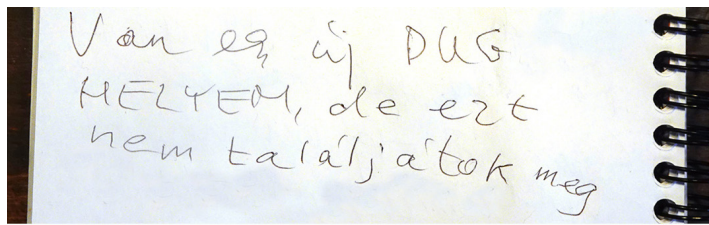 Van eg új DUG
HELYEM, de ezt
nem találjátok meg